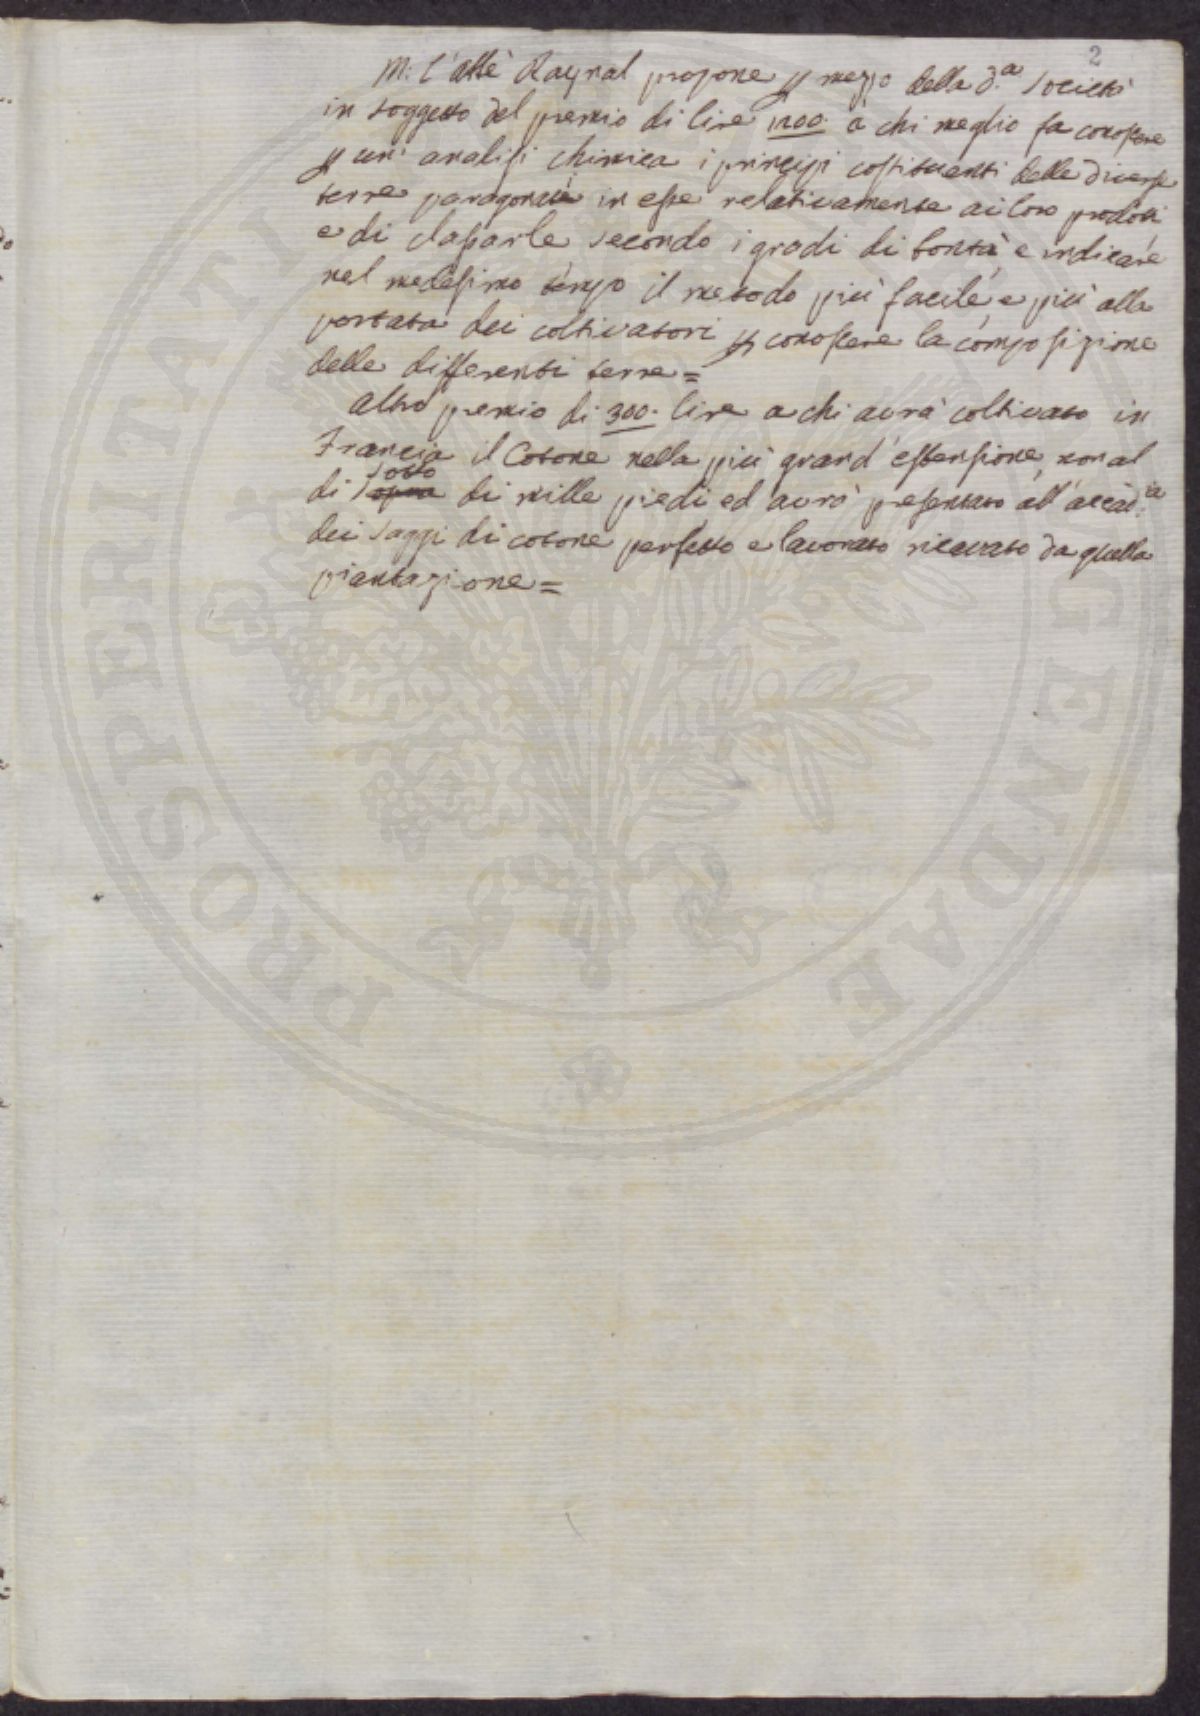 2
M: l'abbè Raynal propone p mezzo della d.a Società
in soggetto del premio di lire 1200. a chi meglio fa conoscere
p un' analisi chimica i principj costituenti delle diverse
terre paragonate in esse relativamente ai loro prodotti
e di classarle secondo i gradi di bontà, e indicare
nel medesimo tempo il metodo più facile, e più alla
portata dei coltivatori p conoscere la composizione
delle differenti terre=
altro premio di 300. lire a chi avrà coltivato in
Francia il Cotone nella più grand' estensione, non al
di sotto sopra di mille piedi ed avrà presentato all' accad.ia
dei saggi di cotone perfetto e lavorato ricavato da quella
piantagione=
PROSPERITATI AUGENDAE